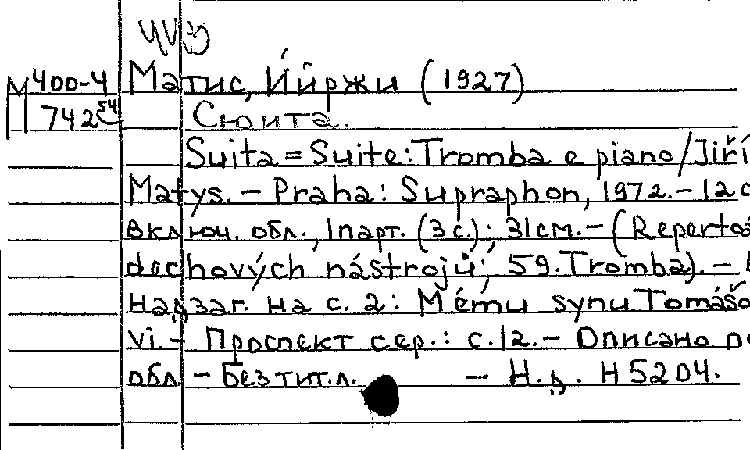 М 400-4 Матис, Йиржи (1927)
П 742 Сюита.
Suita = Suite: Tromba e piano / Jiří
Matys. – Praha: Supraphon, 1972. – 12 с
включ. обл., 1 парт. (3 с.); 31 см. – (Repertoá
dechových nástrojů; 59. Tromba). –
Надзаг. на с. 2: Mému synu Tomášo
vi. – Проспект сер.: с. 12. – Описано по
обл – Без тит. л. – Н. д. Н 5204.